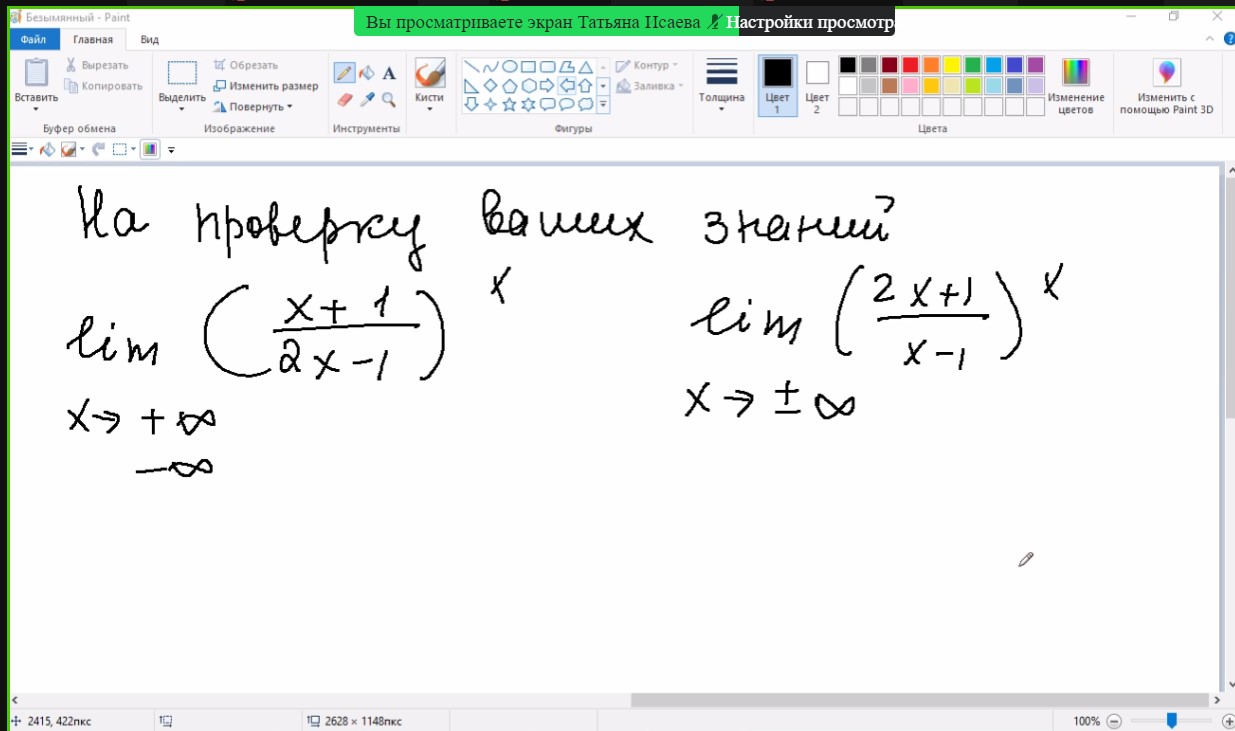 Безымянный - Paint
Вы просматриваете экран Татьяна Исаева
Настройки просмотра
Файл Главная Вид
Вставить
Вырезать
Копировать
Буфер обмена
Выделить
Обрезать
Изменить размер
Повернуть
Изображение
A
Инструменты
Кисти
Фигуры
Контур
Заливка
Толщина
Цвет 1
Цвет 2
Изменение цветов
Цвета
Изменить с помощью Paint 3D
На проверку ваших знаний
lim ( (x+1)/(2x-1) )^x
x→ +∞
-∞
lim ( (2x+1)/(x-1) )^x
x→ ±∞
2415, 422пкс
2628 × 1148пкс
100%